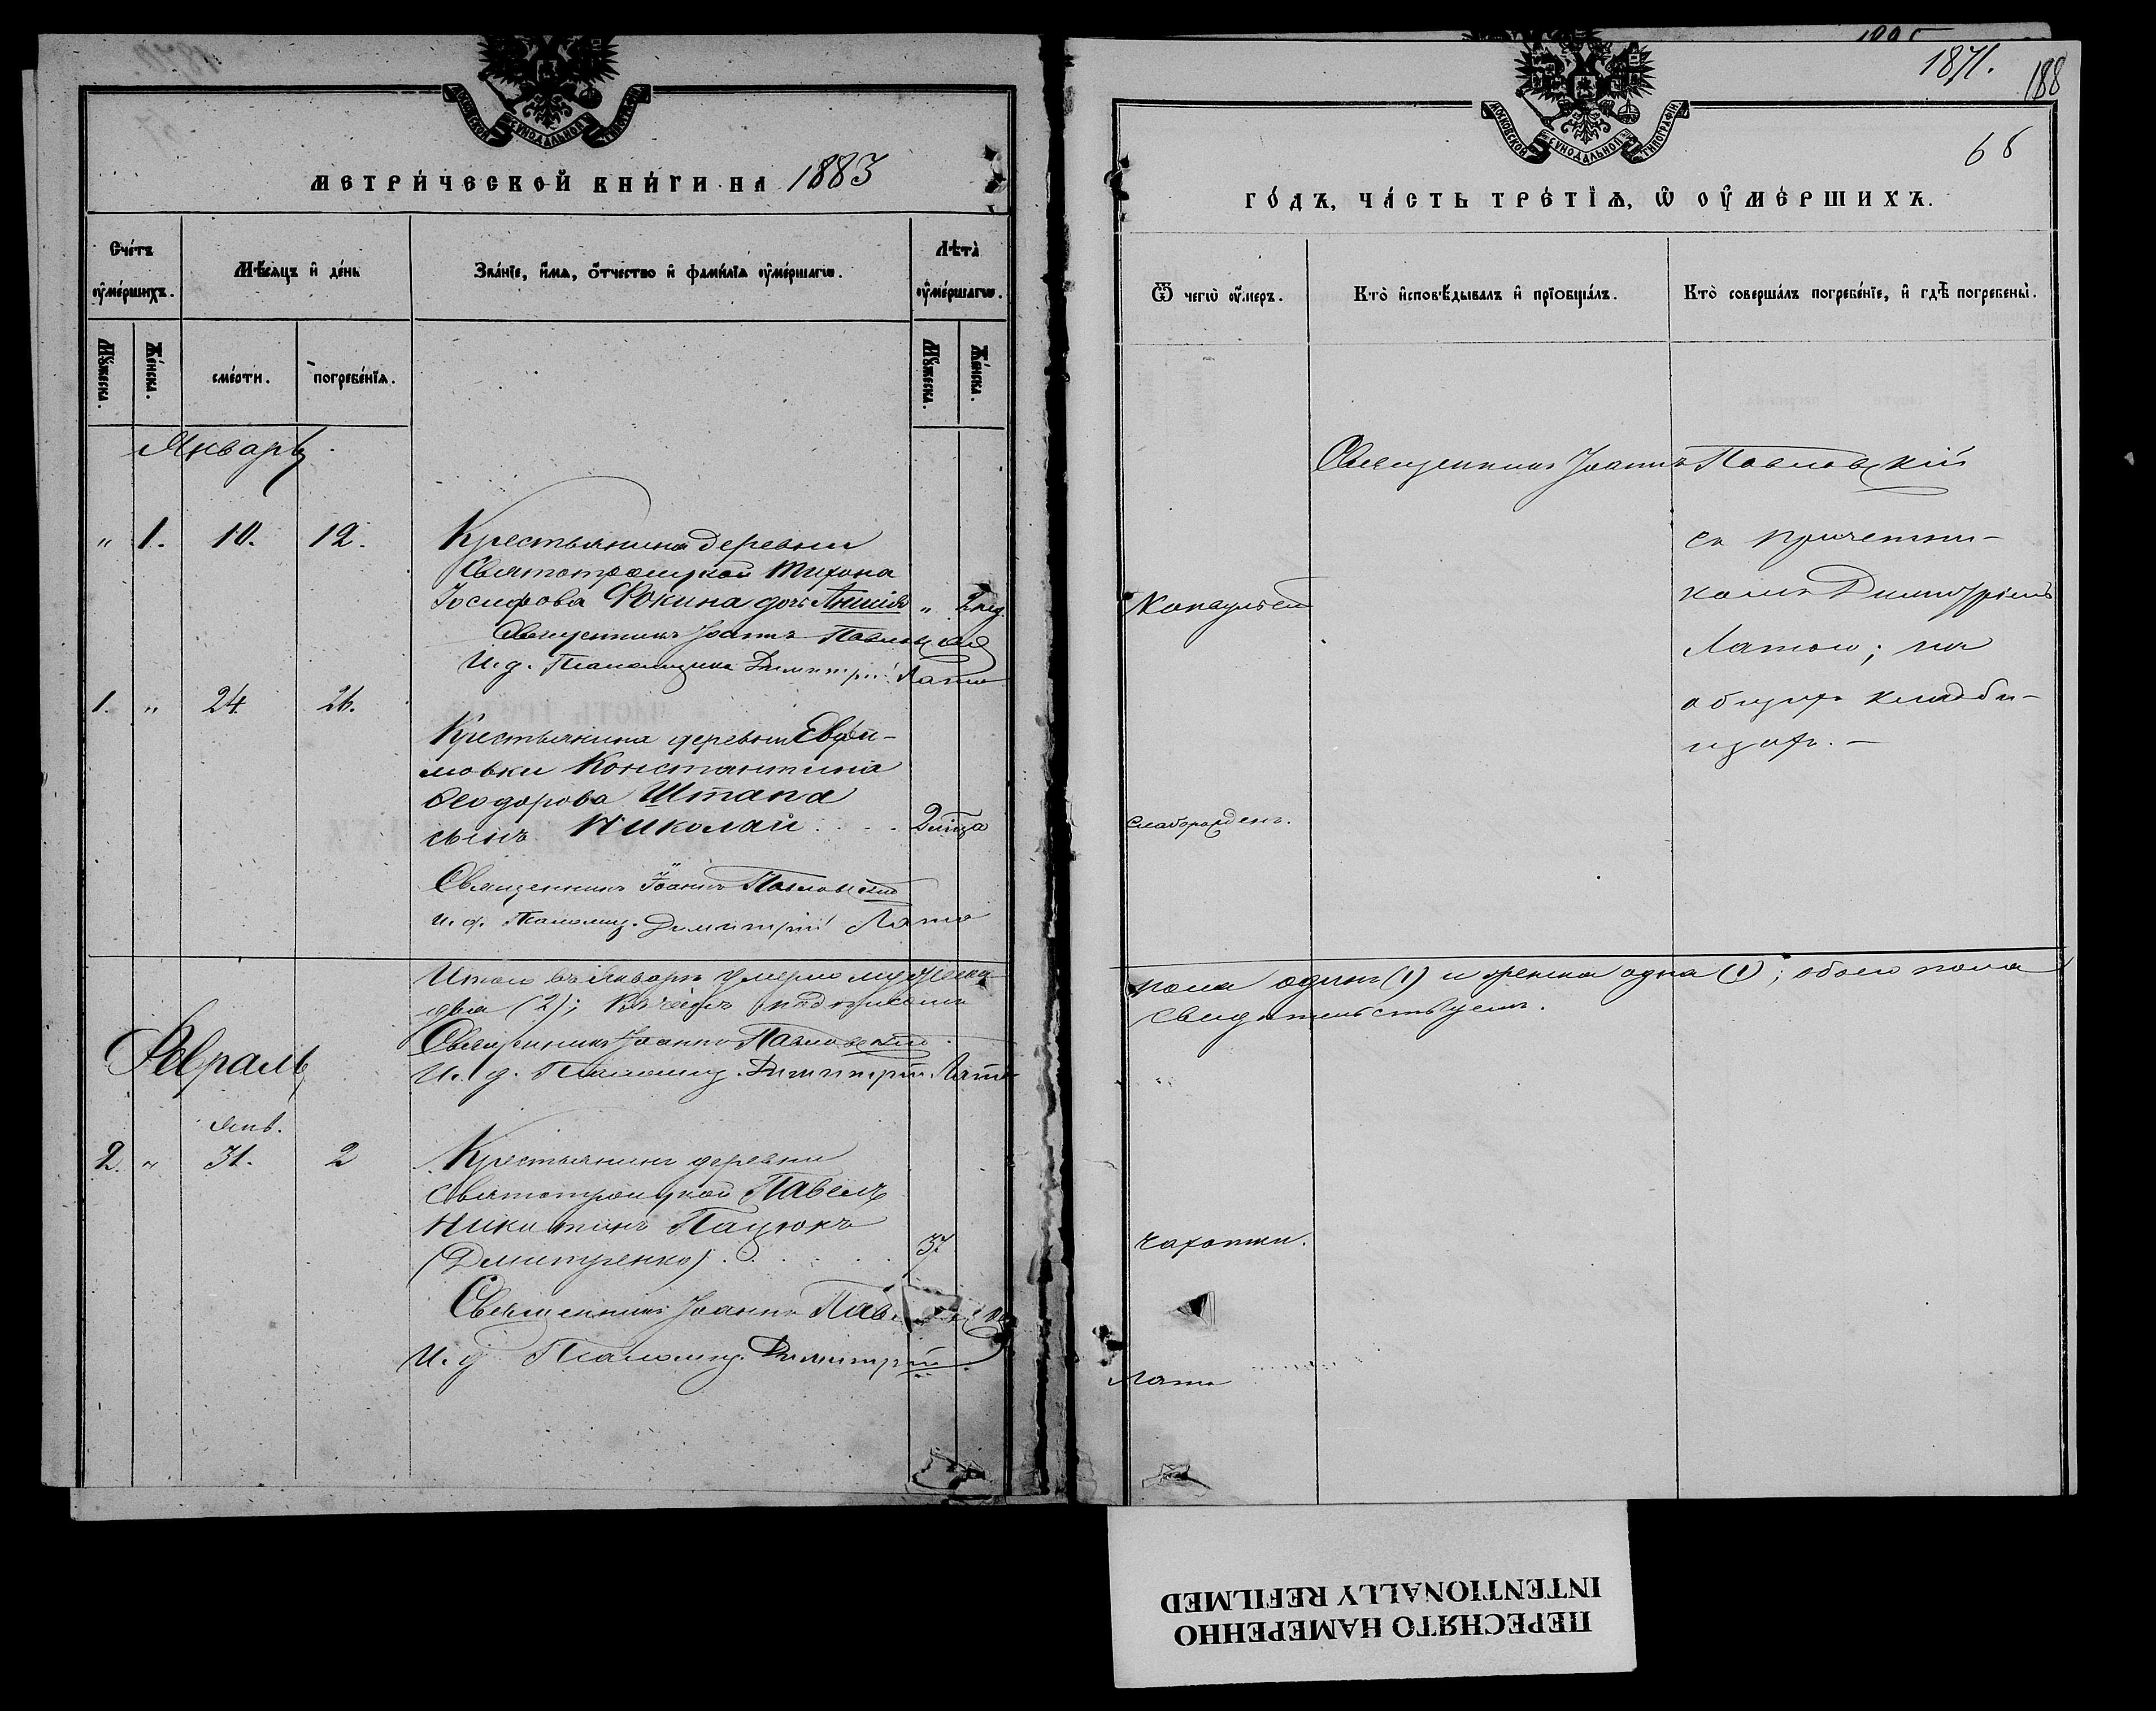 МОСКОВСКОЙ СѴНОДАЛЬНОЙ ТИПОГРАФІИ
МЕТРИ́ЧЕСКОЙ КНИ́ГИ НА 1883
Сче́тъ ᲂу҆ме́ршихъ.
Мѣ́сяцъ и҆ де́нь
Зва́нїе, и҆́мѧ, ѻ҆́тчество и҆ фами́лїѧ ᲂу҆ме́ршагѡ.
Лѣта̀ ᲂу҆ме́ршагѡ.
Мꙋ́жеска.
Же́нска.
сме́рти.
погребе́нїѧ.
Мꙋ́жеска.
Же́нска.
Январь
" 1. 10. 12.
Крестьянина деревни
Святотроицкой Тихона
Іосифова Фокина дочь Анисія " 2 нед.
Священникъ Іоаннъ Павловскій
И. д. Псаломщика Димитрій Лато
1. " 24. 26.
Крестьянина деревни Евфи-
мовки Константина
Ѳеодорова Штапа
сынъ Николай . . . . 2 мѣсяца
Священникъ Іоаннъ Павловскій
И. д. Псаломщ. Димитрій Лато
Итого въ Январѣ умерло мужеска
два (2); въ чемъ подписомъ
Священникъ Іоаннъ Павловскій
И. д. Псаломщ. Димитрій Лато
Февраль
Янв.
2. " 31. 2
Крестьянинъ деревни
Святотроицкой Павелъ
Никитинъ Пацюкъ
(Дмитренко) . . . . . 37
Священникъ Іоаннъ Пав
И. д. Псаломщ. Димитрій
1871.
188
68
МОСКОВСКОЙ СѴНОДАЛЬНОЙ ТИПОГРАФІИ
ГО́ДЪ, ЧА́СТЬ ТРЕ́ТЇѦ, Ѡ҆ ОУ҆МЕ́РШИХЪ.
Ѿ чегѡ̀ ᲂу҆́меръ.
Кто̀ и҆сповѣ́дывалъ и҆ прїобща́лъ.
Кто̀ соверша́лъ погребе́нїе, и҆ гдѣ̀ погребены̀.
Священникъ Іоаннъ Павловскій
съ причетни-
комъ Димитріемъ
Латою; на
общемъ кладби-
щѣ. —
Конвульсій
слаборожденъ.
пола одинъ (1) и женска одна (1); обоего пола
свидѣтельствуемъ.
чахотки.
Лато
ПЕРЕСНЯТО НАМЕРЕННО
INTENTIONALLY REFILMED